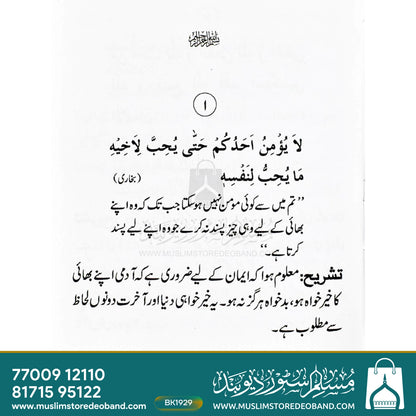 بسم الله الرحمن الرحیم
۱
لاَ یُؤْمِنُ اَحَدُکُمْ حَتّٰی یُحِبَّ لِاَخِیْهِ
مَا یُحِبُّ لِنَفْسِهٖ (بخاری)
’’تم میں سے کوئی مؤمن نہیں ہوسکتا جب تک کہ وہ اپنے
بھائی کے لیے وہی چیز پسند نہ کرے جو وہ اپنے لیے پسند
کرتا ہے۔‘‘
تشریح: معلوم ہوا کہ ایمان کے لیے ضروری ہے کہ آدمی اپنے بھائی
کا خیر خواہ ہو، بدخواہ ہرگز نہ ہو۔ یہ خیر خواہی دنیا اور آخرت دونوں لحاظ
سے مطلوب ہے۔
WWW.MUSLIMSTOREDEOBAND.COM
77009 12110
81715 95122
www.muslimstoredeoband.com
BK1929
مسلم سٹور دیوبند
www.muslimstoredeoband.com